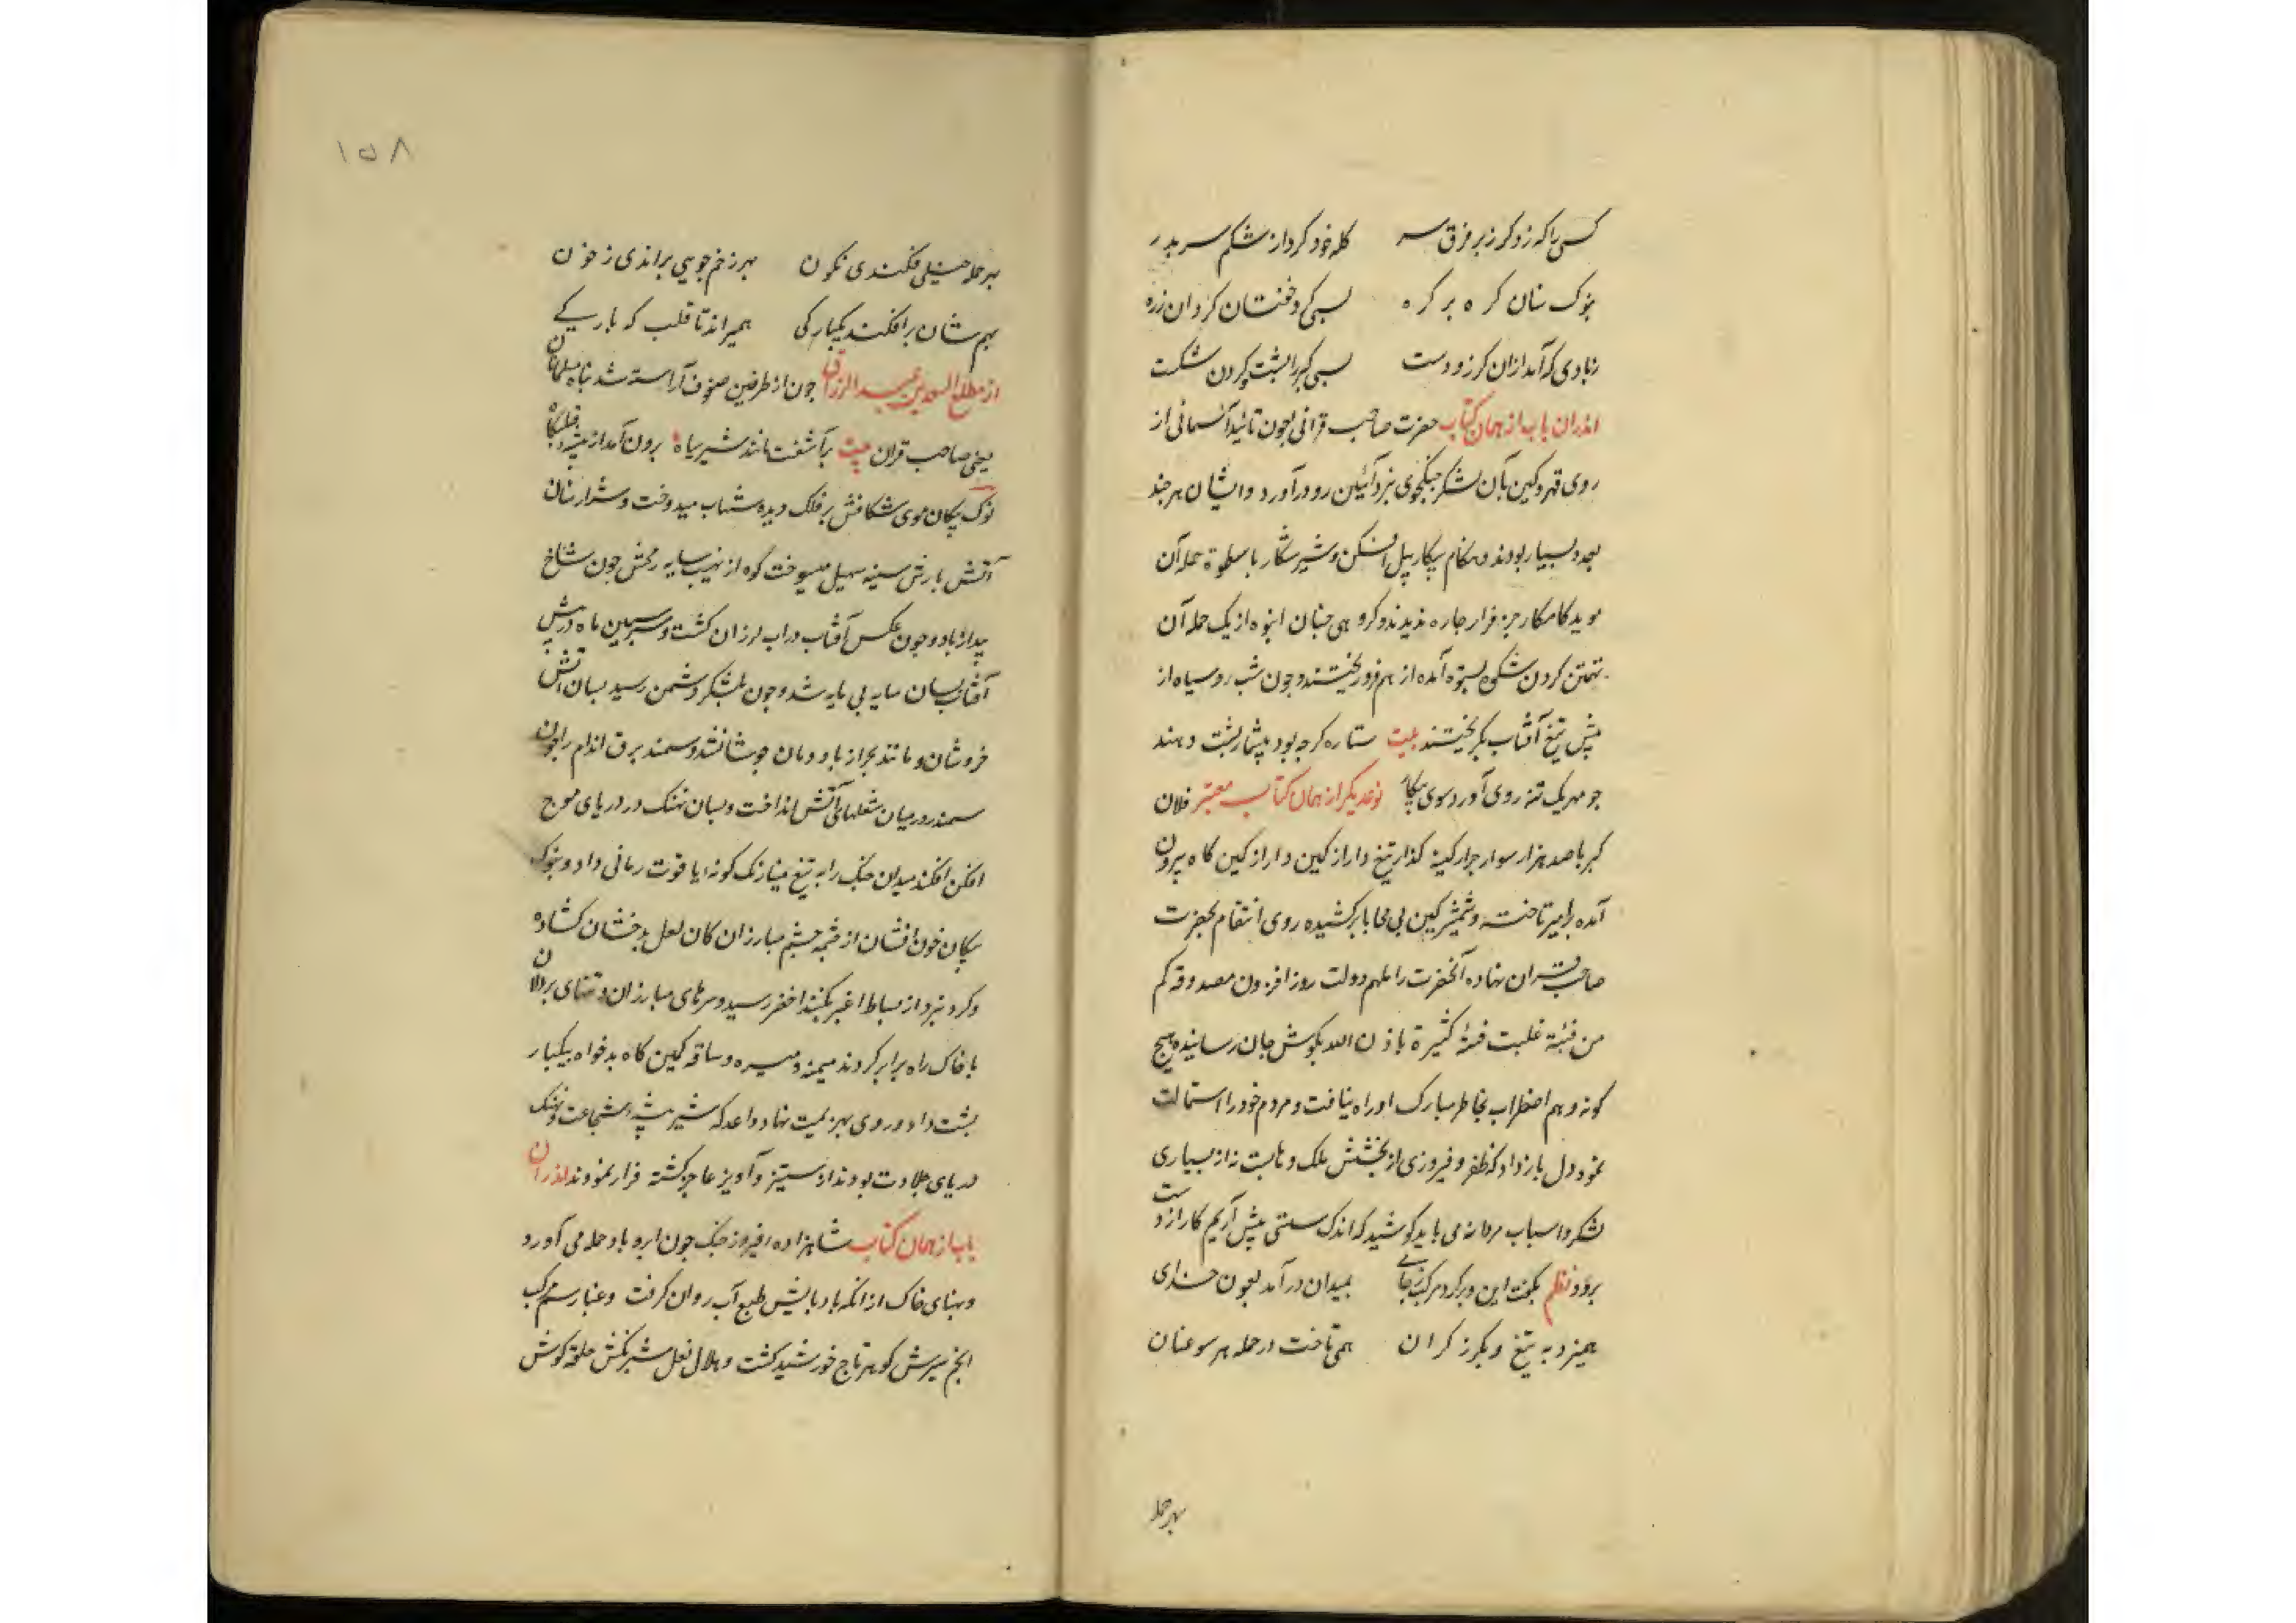 کسی را که زد گرز بر فرق سر کله خود کرد از شکم سر بدر
بنوک سنان کره بر کره بسی دوختشان کردان زره
زبادی که آمد ازان گرز و دست بسی کبر را پشت و گردن شکست
اندران باب از همان کتاب حضرت صاحب قرانی چون تائید آسمانی از
روی قهر و کین بآن لشکر جنکجوی نبرد آئین رو درآورد و ایشان هرچند
بعدد بسیار بودند و هنکام پیکار پیل افکن و شیر شکار با سطوة حمله آن
موید کامکار جز فرار چاره ندیدند و کروهی چنان انبوه از یک حمله آن
تهمتن کردن شکوه بستوه آمده از هم فرو ریختند و چون شب رو سیاه از
پیش تیغ آفتاب بکریختند بیت ستاره کرچه بود بیشمار پشت دهند
چو مهر یک تنه روی آورد سوی پیکار نوعدیکر از همان کتاب معتبر فلان
کبر با صد هزار سوار جرار کینه کذار تیغ دار از کین دار از کمین کاه بیرون
آمده برامیر تاخت و شمشیر کین بی محابا برکشیده روی انتقام بحضرت
صاحب قران نهاده آنحضرت را ملهم دولت روز افزون مصدوقه کم
من فئة غلبت فئة کثیرة باذن الله بکوش جان رسانیده هیچ
کونه وهم اضطراب بخاطر مبارک او راه نیافت و مردم خود را استمالت
نمود و دل باز داد که ظفر و فیروزی از بخشش ملک وهابست نه از بسیاری
لشکر و اسباب مردانه می باید کوشید که اندک سستی پیش آریم کار از دست
برود نظم بکفت این و برکرد مرکب ز جای بمیدان درآمد بعون خدای
همیزد به تیغ و بکرز کران همی تاخت در حمله هر سو عنان
بهر حمله
۱۵۸
بهر حمله خیلی فکندی نکون بهر زخم جویی براندی ز خون
بهم شان برافکند یکبارکی همیراند تا قلب که بارکی
از مطلع السعدین عبد الرزاق چون از طرفین صفوف آراسته شد پناه مسلمانان
یعنی صاحب قران بیت برآشفت مانند شیر سیاه برون آمد از بیشه قلبکاه
نوک پیکان موی شکافش بر فلک دیده شهاب میدوخت و شرار سنان
آتش بارش سینه سهیل میسوخت کوه از نهیب سایه رخش چون شاخ
بید از باد و چون عکس آفتاب در آب لرزان کشت و سپر سیمین ماه در پیش
آفتاب بسان سایه بی مایه شد و چون بلشکر دشمن رسید بسان آتش
خروشان و مانند بحر از باد دمان جوشان شد و سمند برق اندام را چون
سمندر در میان شعلهای آتش انداخت و بسان نهنک در دریای موج
افکن افکند میدان جنک را به تیغ مینارنک کونه یاقوت رمانی داد و بنوک
پیکان خون افشان از چشمه چشم مبارزان کان لعل بدخشان کشاده
و کرد نبرد از بساط اغبر بکنبد اخضر رسید و سرهای مبارزان و تنهای بردلان
با خاک راه برابر کردند میمنه و میسره و ساقه کمین کاه بدخواه بیکبار
پشت داد و روی بهزیمت نهاد و اعدا که شیر بیشه شجاعت و نهنک
دریای جلادت بودند از ستیز و آویز عاجز کشته فرار نمودند اندران
باب از همان کتاب شاهزاده فیروز جنک چون ابر و باد حمله می آورد
و پهنای خاک از آنکه باد پایش طبع آب روان کرفت و غبار سم مرکب
انجم سیرش کوهر تاج خورشید کشت و هلال نعل شبرنکش حلقه کوش